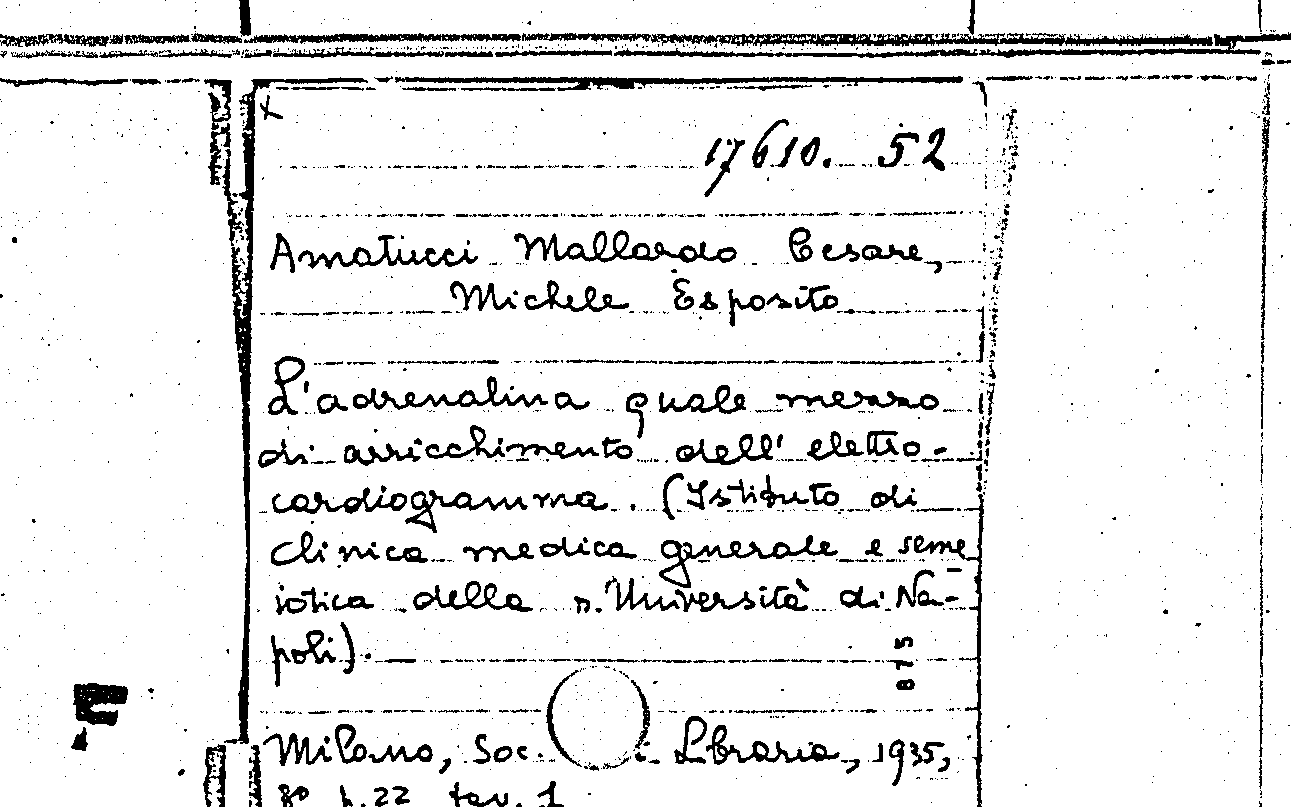 17610. 52
Amatucci Mallardo Cesare,
Michele Esposito
L'adrenalina quale mezzo
di arricchimento dell' elettro-
cardiogramma. (Istituto di
clinica medica generale e seme
iotica della r. Università di Na-
poli). —
875
Milano, Soc. Libraria, 1935,
8° p. 22 tav. 1